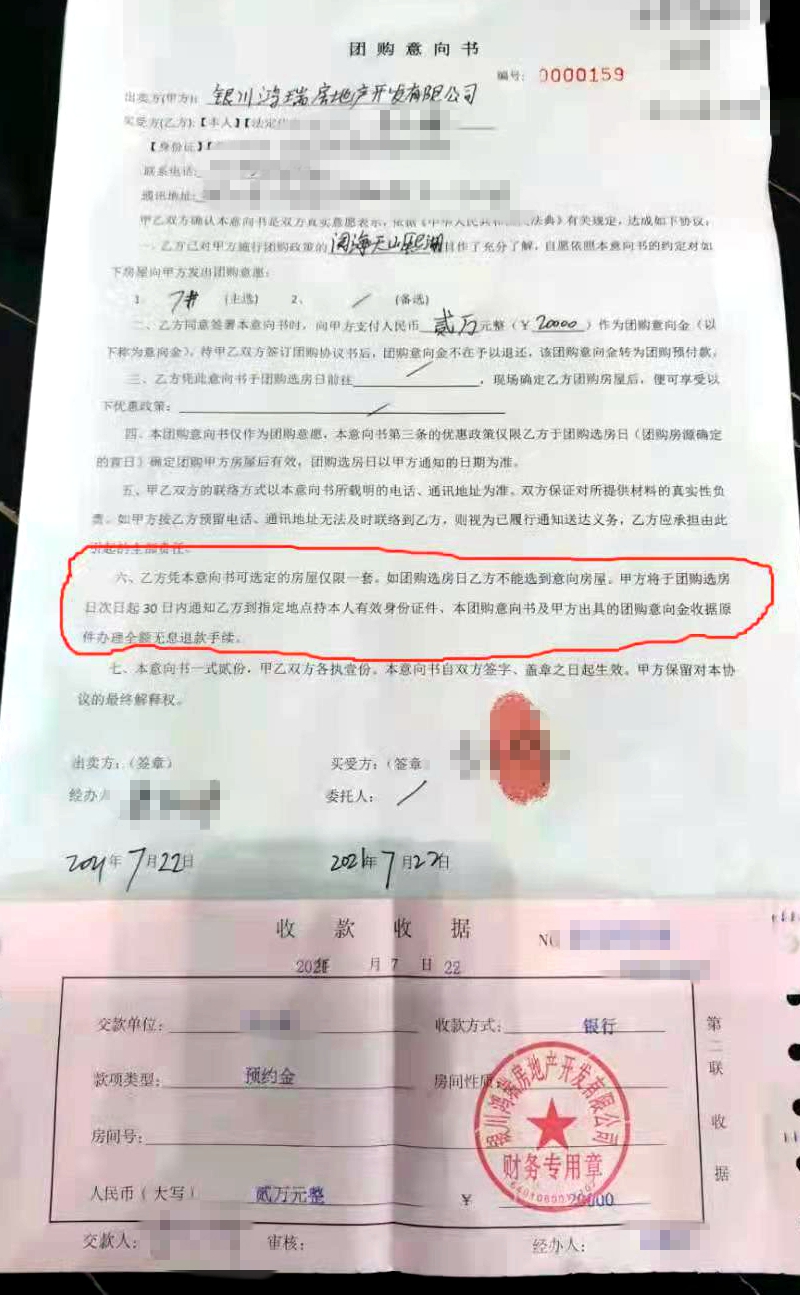 团购意向书
编号: 0000159
出卖方(甲方): 银川鸿瑞房地产开发有限公司
买受方(乙方):【本人】【法定
【身份证】
联系电话:
通讯地址:
甲乙双方确认本意向书是双方真实意愿表示,依据《中华人民共和 法典》有关规定,达成如下协议,
一、乙方已对甲方施行团购政策的 阅海天山熙湖 项目作了充分了解,自愿依照本意向书的约定对如
下房屋向甲方发出团购意愿:
1 7# (主选) 2、 / (备选)
二、乙方同意签署本意向书时,向甲方支付人民币 贰万 元整(¥ 20000 )作为团购意向金(以
下称为意向金),待甲乙双方签订团购协议书后,团购意向金不在予以退还,该团购意向金转为团购预付款。
三、乙方凭此意向书于团购选房日前往 / ,现场确定乙方团购房屋后,便可享受以
下优惠政策: /
四、本团购意向书仅作为团购意愿,本意向书第三条的优惠政策仅限乙方于团购选房日(团购房源确定
的首日)确定团购甲方房屋后有效,团购选房日以甲方通知的日期为准。
五、甲乙双方的联络方式以本意向书所载明的电话、通讯地址为准。双方保证对所提供材料的真实性负
责。如甲方按乙方预留电话、通讯地址无法及时联络到乙方,则视为已履行通知送达义务,乙方应承担由此
引起的全部责任。
六、乙方凭本意向书可选定的房屋仅限一套。如团购选房日乙方不能选到意向房屋。甲方将于团购选房
日次日起 30 日内通知乙方到指定地点持本人有效身份证件、本团购意向书及甲方出具的团购意向金收据原
件办理全额无息退款手续。
七、本意向书一式贰份,甲乙双方各执壹份。本意向书自双方签字、盖章之日起生效。甲方保留对本协
议的最终解释权。
出卖方:(签章) 买受方:(签章
经办 委托人: /
2021年 7月22日 2021年 7月22日
收款收据
NO
2021年 月 7 日 22
交款单位: 收款方式: 银行
款项类型: 预约金 房间性质
房间号:
人民币(大写) 贰万元整 ¥ 20000
交款人: 审核: 经办人:
第二联 收据
银川鸿瑞房地产开发有限公司
财务专用章